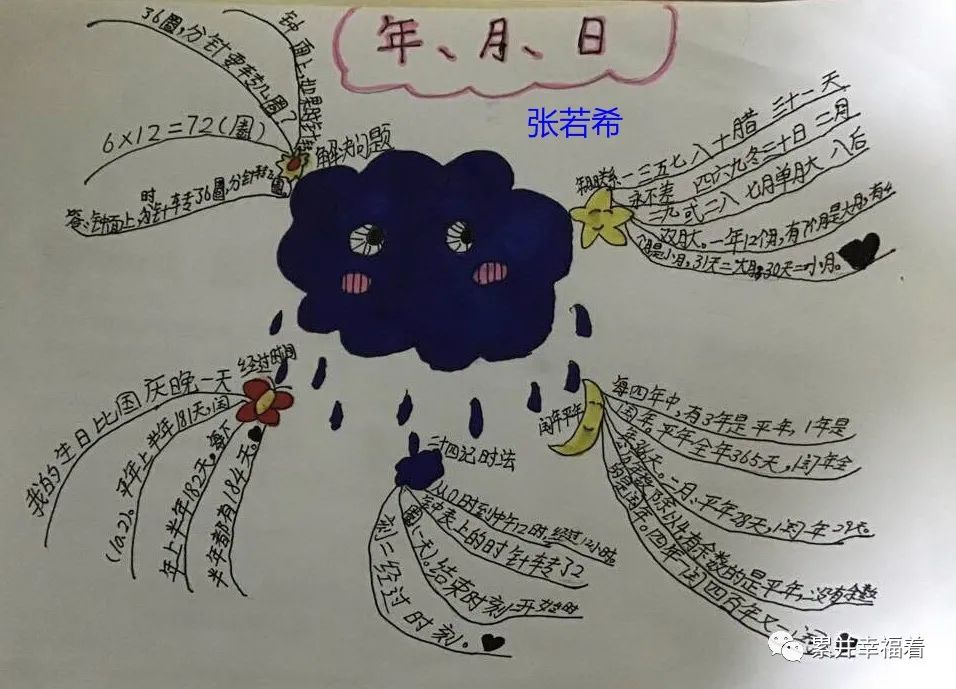 年、月、日
张若希
解决问题
钟面上,如果时针转
36圈,分针要转几圈?
6×12=72(圈)
答:钟面上,时针转36圈,分针转72圈。
一三五七八十腊 三十一天
永不差 四六九冬三十日 二月
二八 七月单月大 八后
双月大。一年12个月,有7个月是大月,有4
个月是小月,31天=大月,30天=小月。
闰年平年
每四年中,有3年是平年,1年是
闰年。平年全年365天,闰年全
年366天。二月、平年28天,闰年29天。
有余数的是平年,没有余数
的是闰年。四年一闰四百年又一闰
二十四记时法
从0时到中午12时,经过12小时。
钟表上的时针转了2
圈(一天)。结束时刻-开始时
刻=经过时刻。
经过时间
我的生日比国庆晚一天
(10.2)。平年上半年181天,闰
年上半年182天。每下
半年都有184天。
累并幸福着